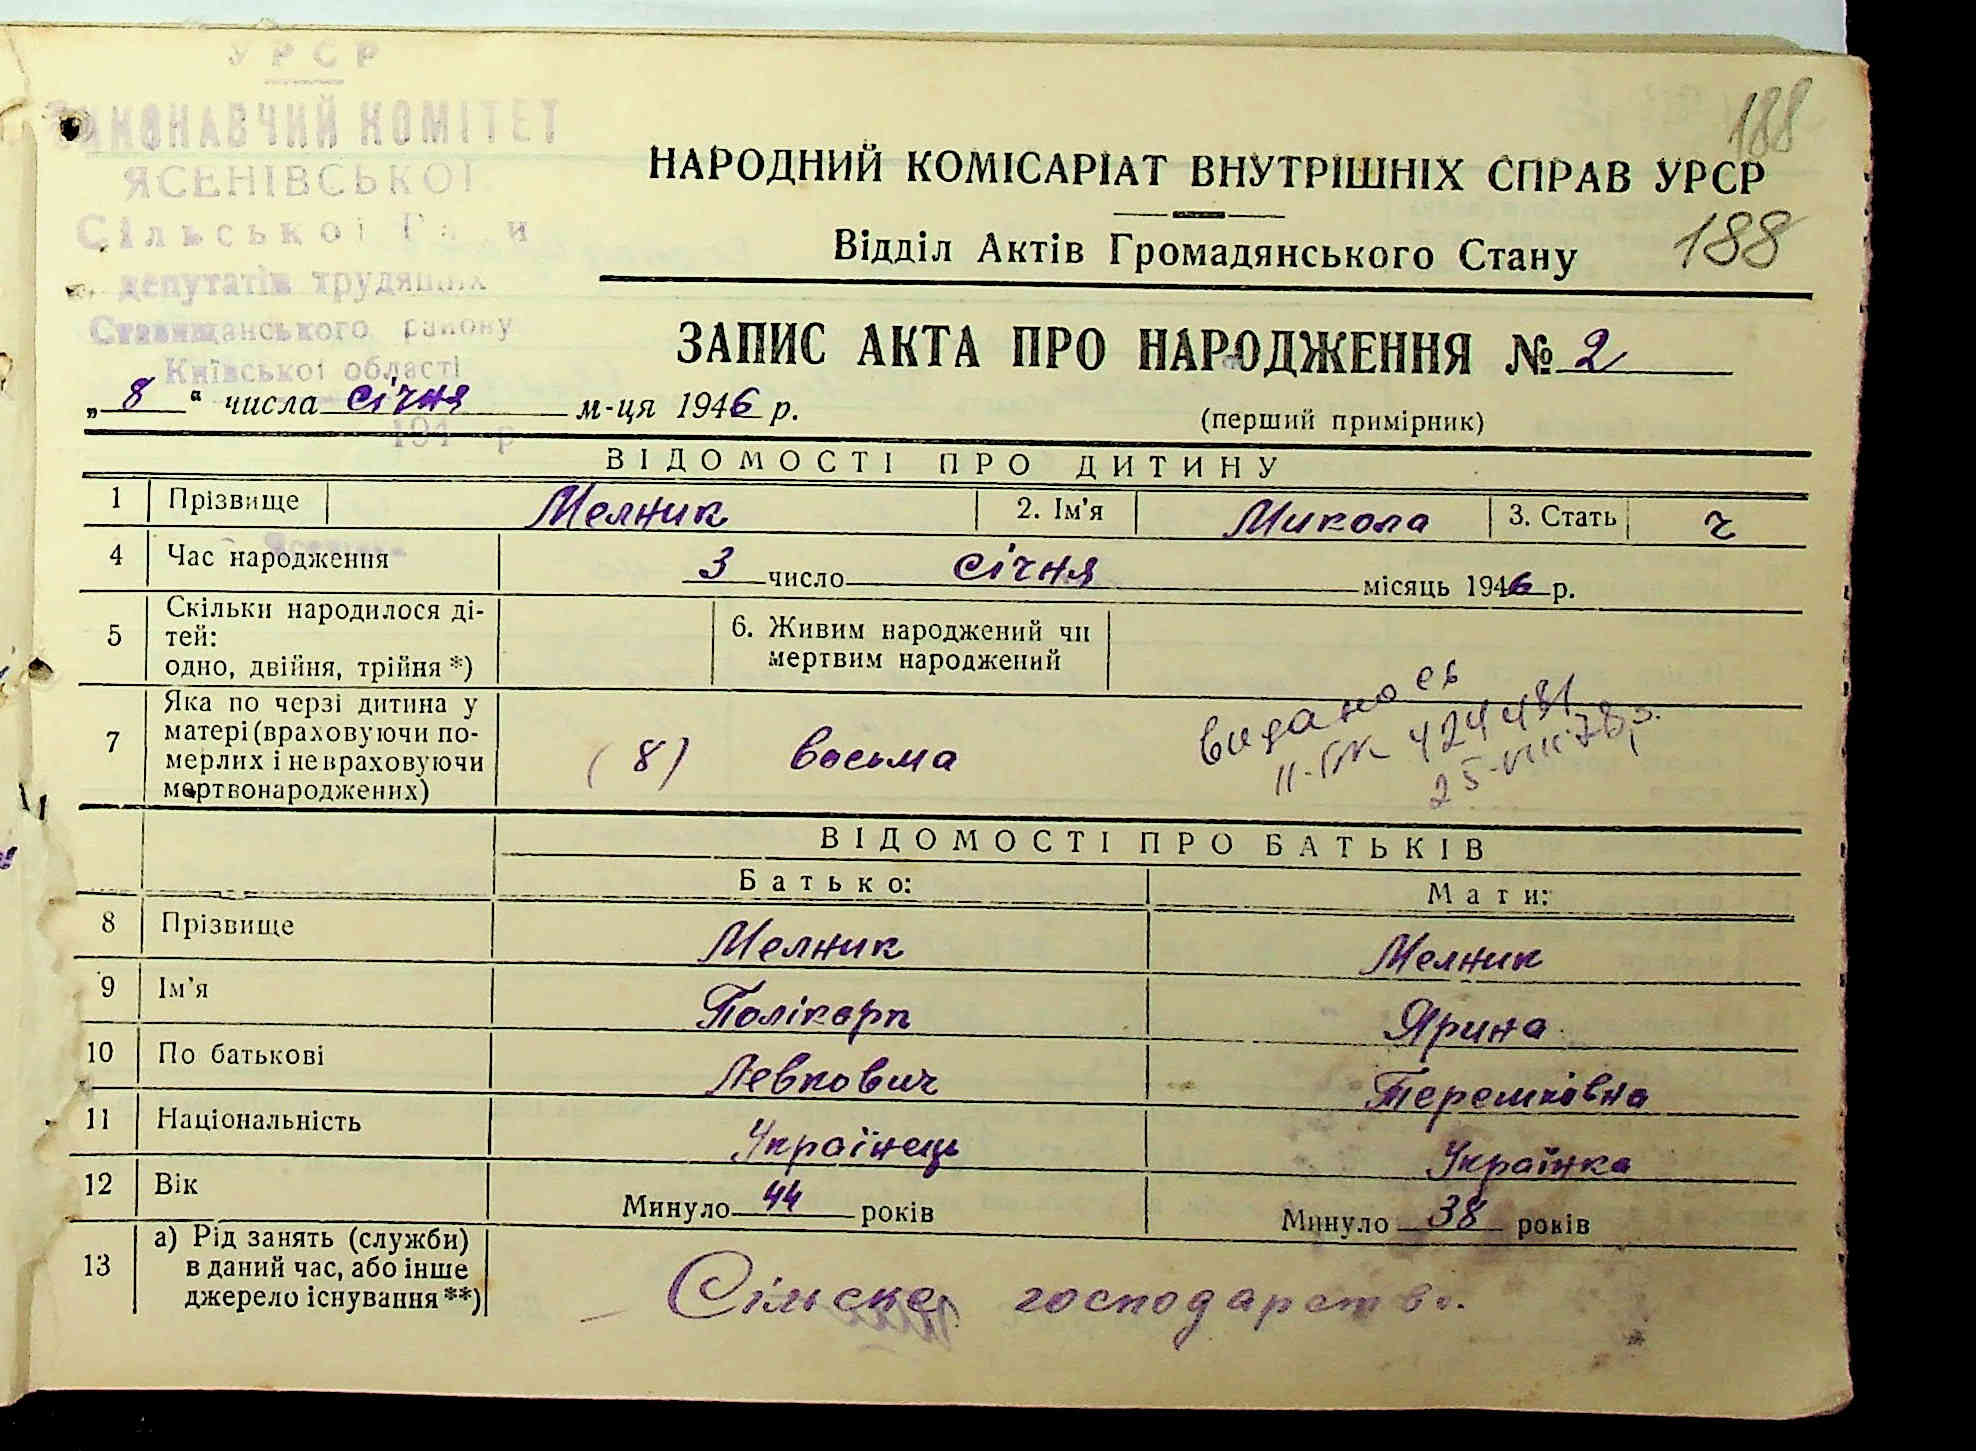 УРСР
ВИКОНАВЧИЙ КОМІТЕТ
ЯСЕНІВСЬКОЇ
Сільської Ради
депутатів трудящих
Ставищанського району
Київської області
194 р
188
НАРОДНИЙ КОМІСАРІАТ ВНУТРІШНІХ СПРАВ УРСР
Відділ Актів Громадянського Стану 188
ЗАПИС АКТА ПРО НАРОДЖЕННЯ № 2
„8“ числа січня м-ця 1946 р.
(перший примірник)
ВІДОМОСТІ ПРО ДИТИНУ
1 Прізвище Мелник 2. Ім'я Микола 3. Стать ч
4 Час народження 3 число січня місяць 1946 р.
5 Скільки народилося ді-
тей:
одно, двійня, трійня *)
6. Живим народжений чи
мертвим народжений
7 Яка по черзі дитина у
матері (враховуючи по-
мерлих і не враховуючи
мертвонароджених)
(8) восьма
видано св
II-БК 424481
25-VIII-78р.
ВІДОМОСТІ ПРО БАТЬКІВ
Батько: Мати:
8 Прізвище Мелник Мелник
9 Ім'я Полікарп Ярина
10 По батькові Левкович
11 Національність Українець Українка
12 Вік Минуло 44 років Минуло 38 років
13 а) Рід занять (служби)
в даний час, або інше
джерело існування **)
Сільске господарство.